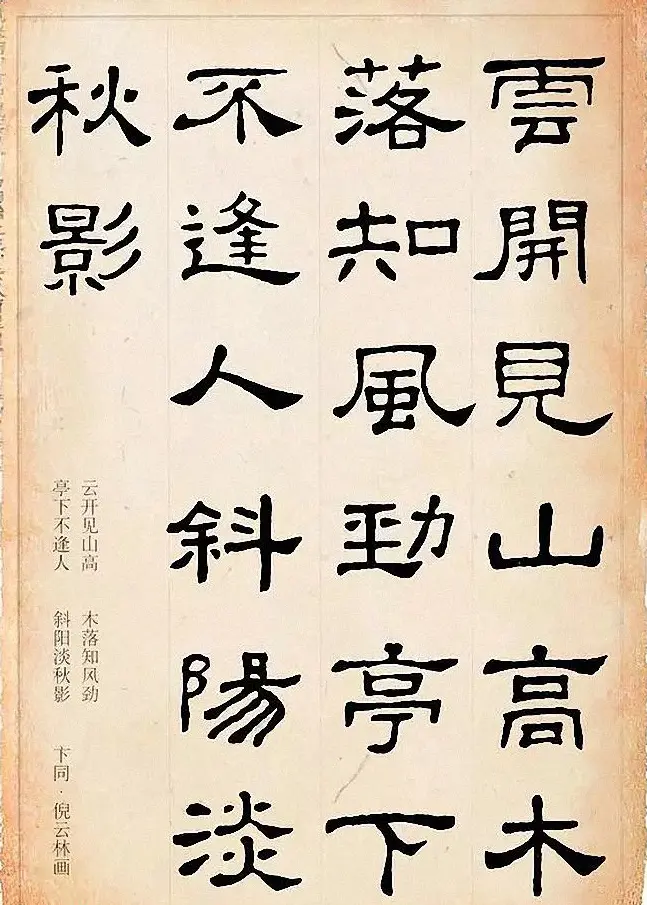 雲開見山高木
落知風勁亭下
不逢人斜陽淡
秋影
云开见山高 木落知风劲
亭下不逢人 斜阳淡秋影 卞同·倪云林画